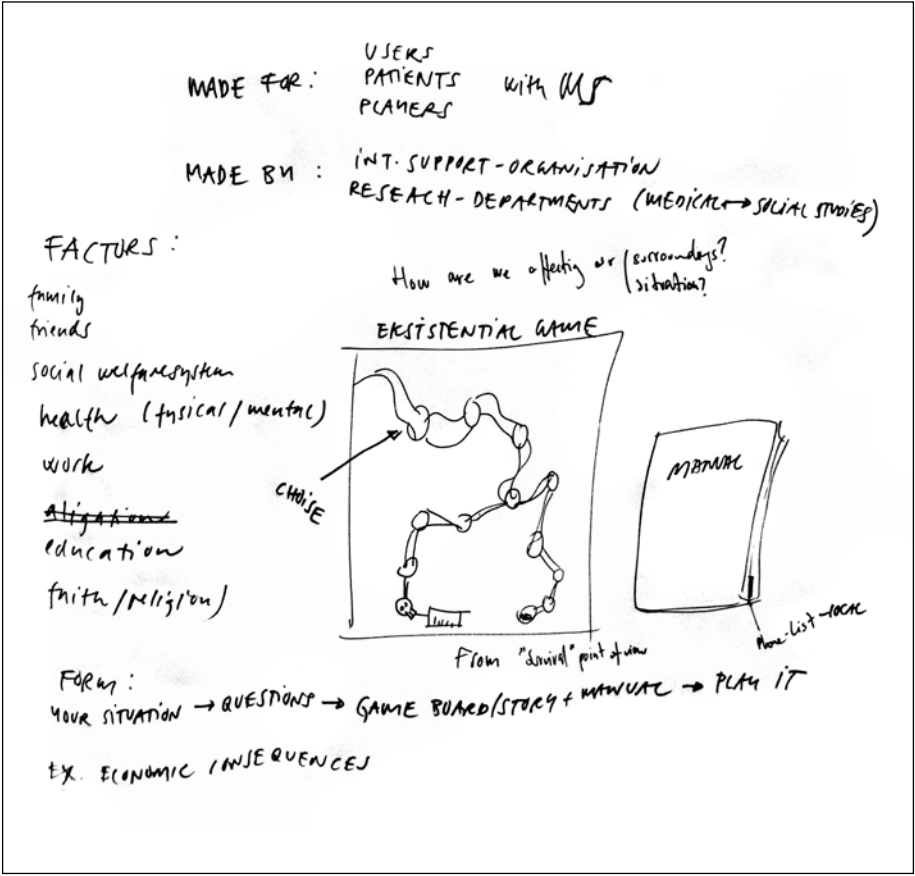 MADE FOR: USERS
PATIENTS with MS
PLAYERS
MADE BY: INT. SUPPORT-ORGANISATION
RESEACH-DEPARTMENTS (MEDICAL↔SOCIAL STUDIES)
FACTORS:
How are we affecting our / surroundings?
situation?
family
friends
social welfaresystem
health (fysical/mental)
work
education
faith/religion)
EKSISTENTIAL GAME
CHOISE
MANUAL
Phone-List-LOCAL
From "survival" point of view
FORM:
YOUR SITUATION → QUESTIONS → GAME BOARD/STORY + MANUAL → PLAY IT
EX. ECONOMIC CONSEQUENCES